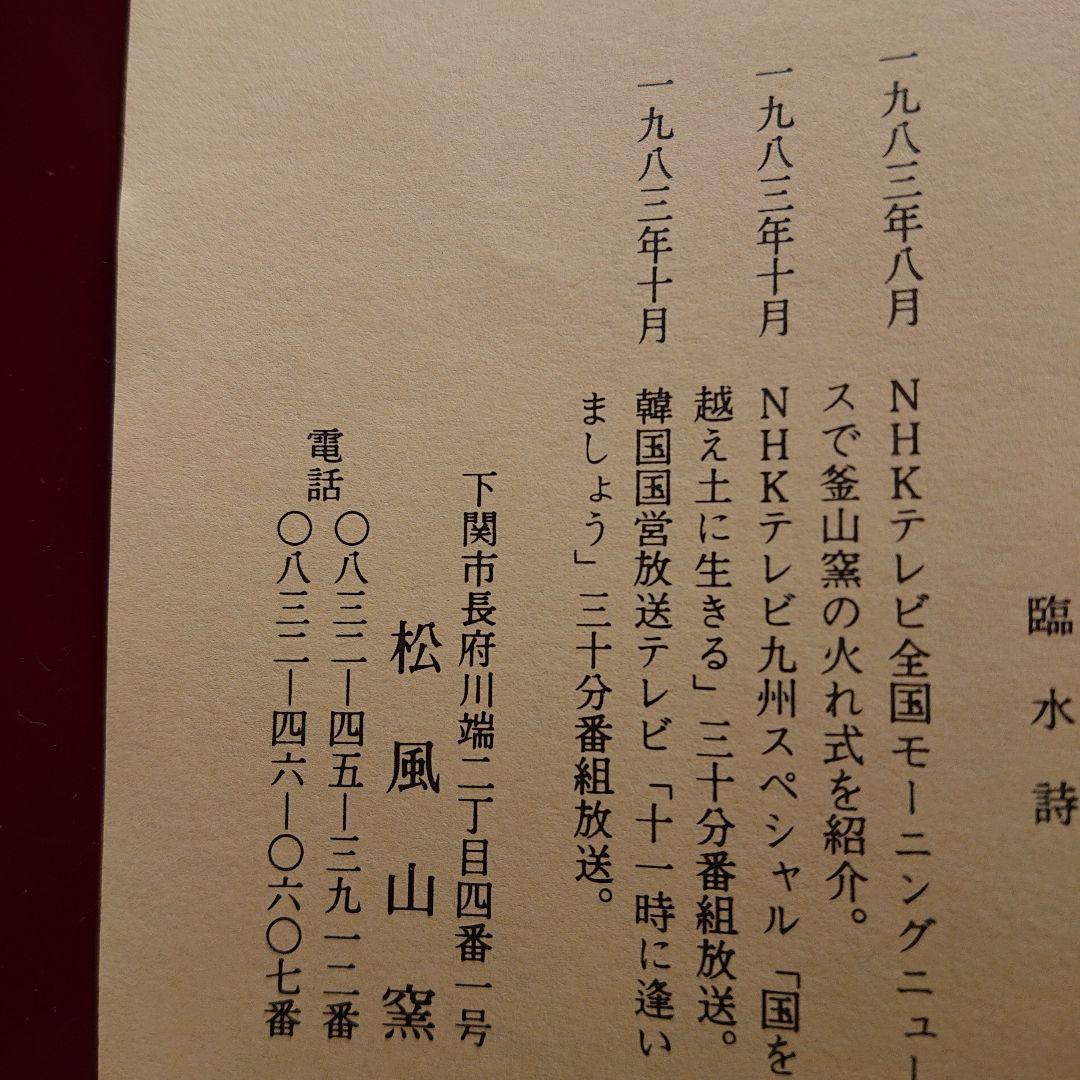 臨水詩
一九八三年八月 NHKテレビ全国モーニングニュー
スで釜山窯の火れ式を紹介。
一九八三年十月 NHKテレビ九州スペシャル「国を
越え土に生きる」三十分番組放送。
一九八三年十月 韓国国営放送テレビ「十一時に逢い
ましょう」三十分番組放送。
下関市長府川端二丁目四番一号
松風山窯
電話 〇八三二—四五—三九一二番
〇八三二—四六—〇六〇七番